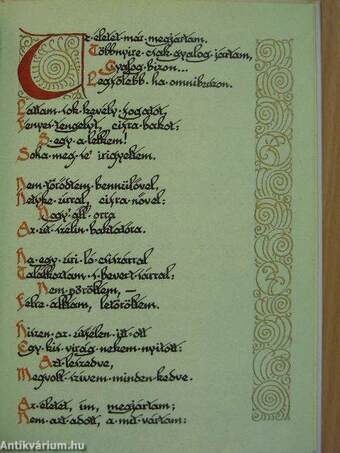 Az életet már megjártam.
Többnyire csak gyalog jártam,
Gyalog bizon...
Legfölebb ha omnibuszon.
Láttam sok kevély fogatot,
Fényes tengelyt, cifra bakot:
S egy a lelkem!
Soha meg se' irigyeltem.
Nem törődtem bennülővel,
Hetyke úrral, cifra nővel:
Hogy áll orra
Az út szélin baktatóra.
Ha egy úri lócsiszárral
Találkoztam s bevert sárral:
Nem pöröltem, –
Félre álltam, letöröltem.
Hiszen az útfélen itt-ott
Egy kis virág nekem nyitott:
Azt leszedve,
Megvolt szívem minden kedve.
Az életet, ím, megjártam;
Nem azt adott, a mit vártam:
Antikvárium.hu